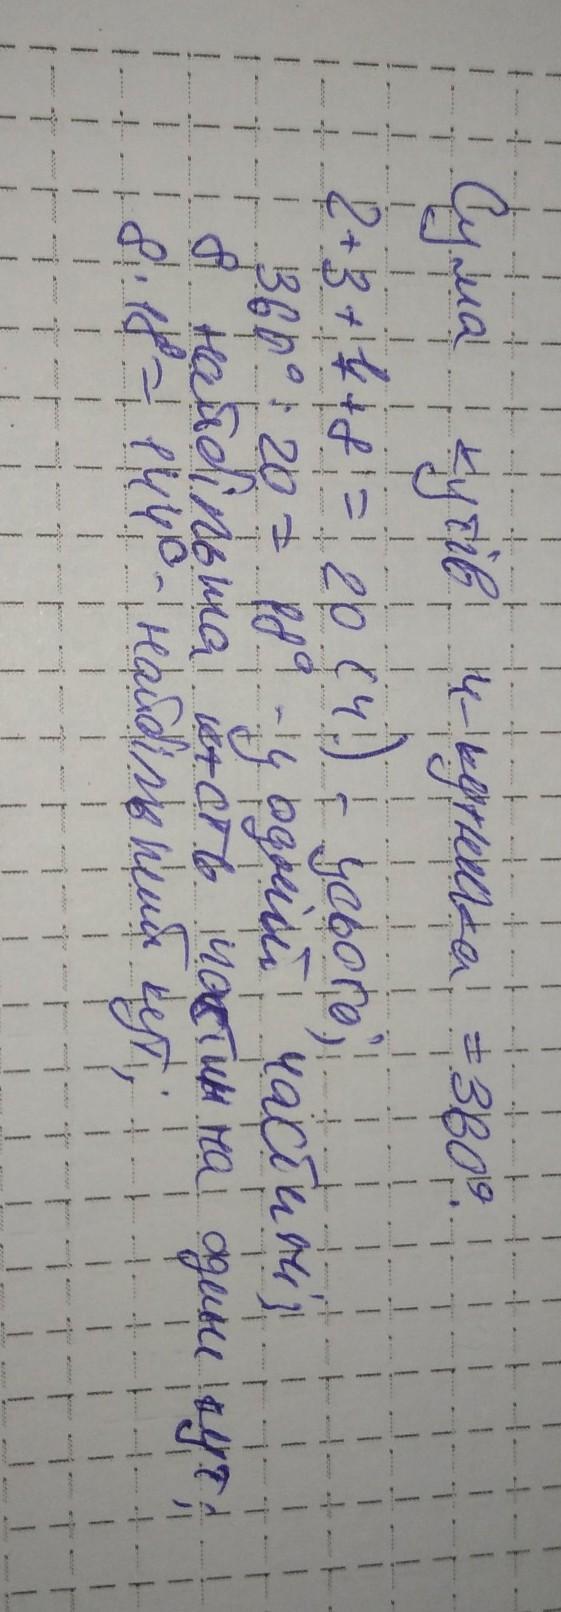 Сума кутів 4-кутника = 360°.
2+3+7+8 = 20 (ч.) - усього;
360° : 20 = 18° - у одній частині;
8 найбільша к-сть частин на один кут;
8·18° = 144° - найбільший кут;